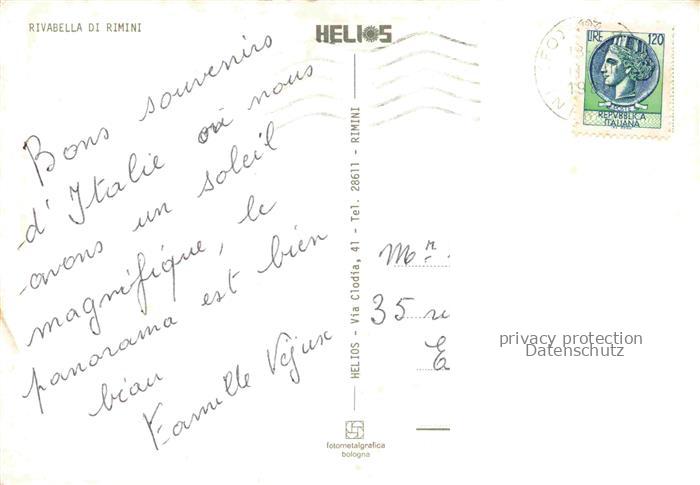 RIVABELLA DI RIMINI
HELIOS
Bons souvenirs
d'Italie où nous
avons un soleil
magnifique, le
panorama est bien
beau
Famille
HELIOS - Via Clodia, 41 - Tel. 28611 - RIMINI
fotometalgrafica
bologna
LIRE 120
POSTE
REPVBBLICA
ITALIANA
Mr.
35
privacy protection
Datenschutz